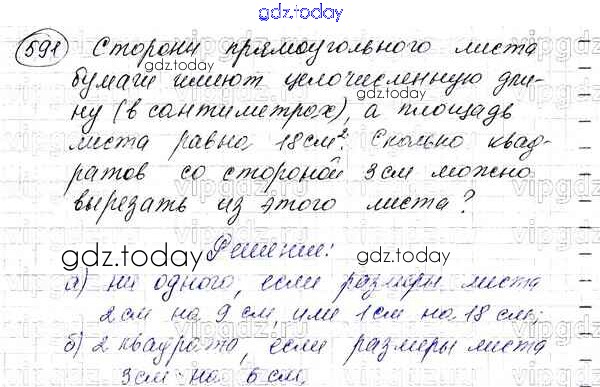 gdz.today
591 Стороны прямоугольного листа
бумаги имеют целочисленную дли-
ну (в сантиметрах), а площадь
листа равна 18 см². Сколько квад-
ратов со стороной 3 см можно
вырезать из этого листа?
gdz.today
Решение:
gdz.today
а) ни одного, если размеры листа
2 см на 9 см, или 1 см на 18 см;
б) 2 квадрата, если размеры листа
3 см на 6 см.
gdz.today